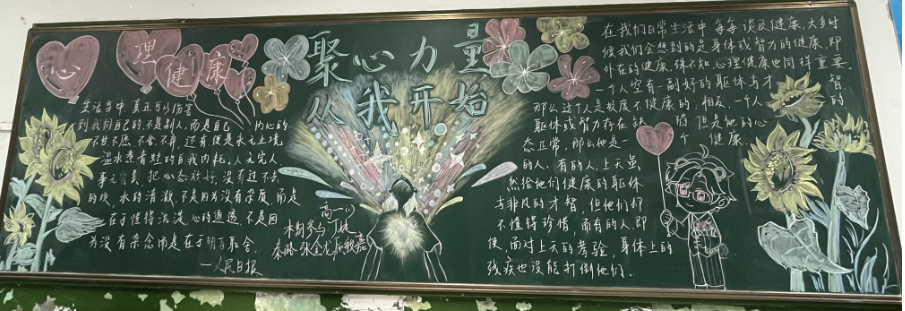 心理健康
聚心力量
从我开始
生活当中,真正可以伤害
到我们自己的,不是别人,而是自己内心的
不甘不愿、不舍不弃,还有便是永无止境,
温水煮青蛙的自我内耗,人无完人
事无完美,把心态放好,没有过不去
的坎,水的清澈,不是因为没有杂质,而是
在于懂得沉淀,心的通透,不是因
为没有杂念而是在于明白取舍。
—人民日报
高一
本期参与
在我们日常生活中,每每谈及健康,大多时
候我们会想到的是身体或智力的健康,即
外在的健康,殊不知心理健康也同样重要,
一个人空有一副好的躯体与才智
那么这个人是极度不健康的,相反,一个人的
躯体或智力存在缺陷,但是他的心
态正常,那么他是一个健康
的人,有的人,上天虽
然给他们健康的躯体
与非凡的才智,但他们却
不懂得珍惜,而有的人,即
使面对上天的考验,身体上的
残疾也没能打倒他们。